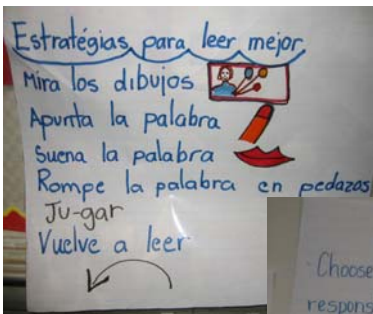 Estratégias para leer mejor
Mira los dibujos
Apunta la palabra
Suena la palabra
Rompe la palabra en pedazos
Ju-gar
Vuelve a leer
- Choose
respons